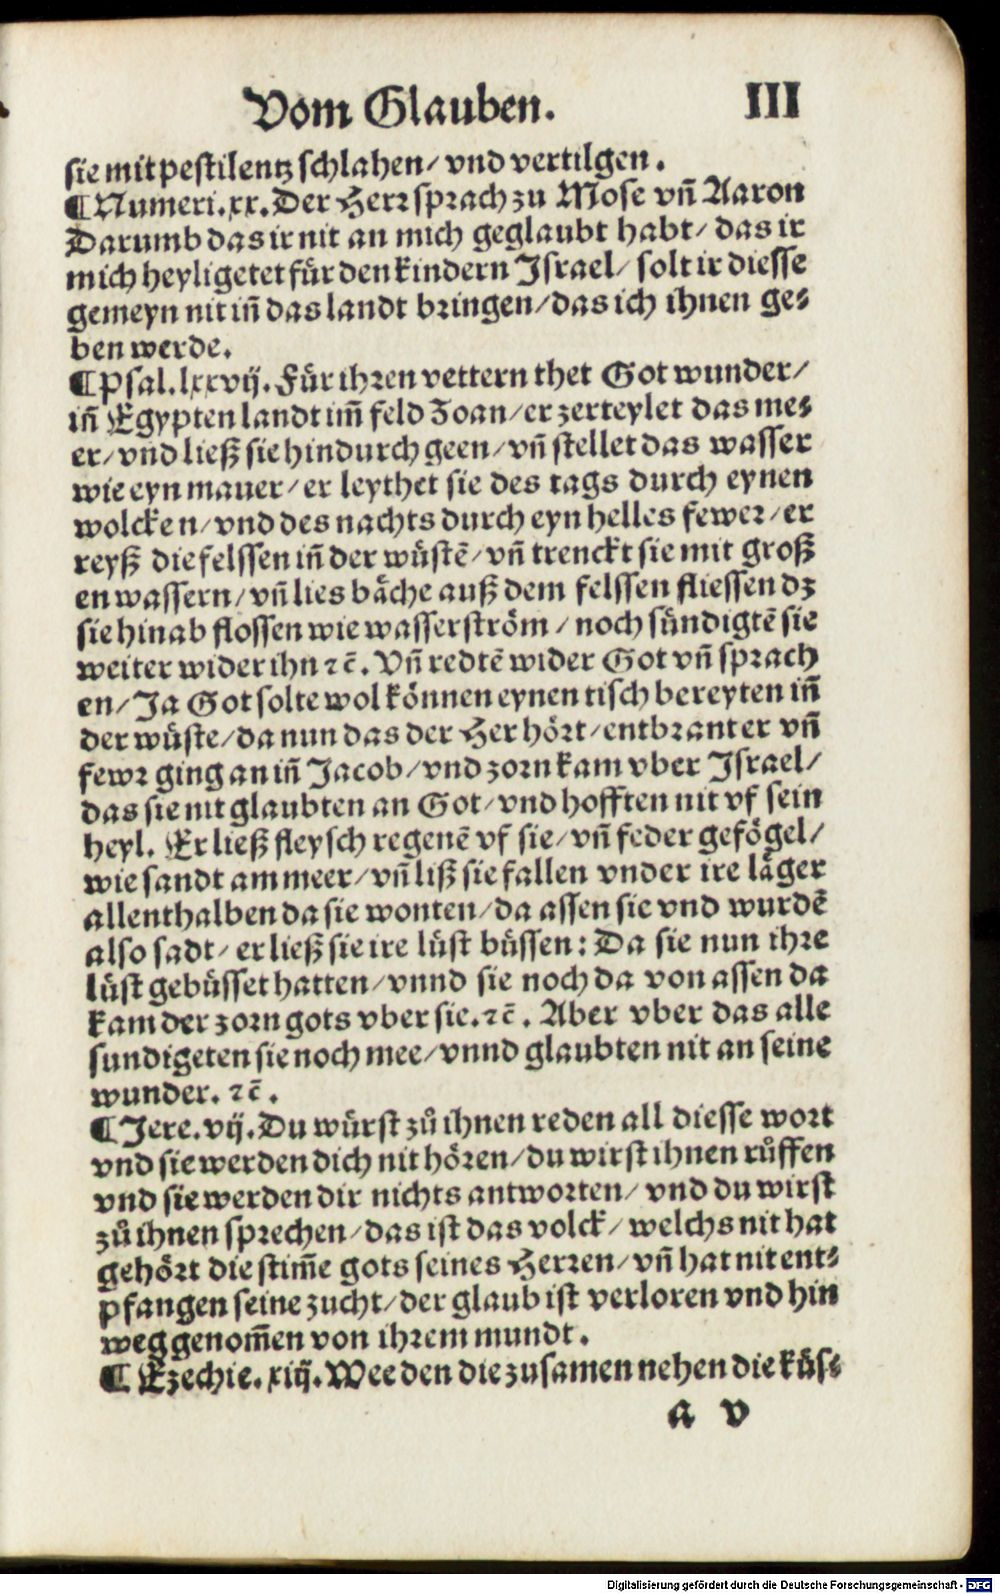 Vom Glauben. III
sie mit pestilentz schlahen/ vnd vertilgen.
¶Numeri.xx.Der Herr sprach zu Mose vñ Aaron
Darumb das ir nit an mich geglaubt habt/ das ir
mich heyligetet für den kindern Israel/ solt ir diesse
gemeyn nit iñ das landt bringen/das ich ihnen ge⸗
ben werde.
¶Psal.lxxvij.Für ihren vettern thet Got wunder/
iñ Egypten landt im̃ feld Zoan/er zerteylet das me⸗
er/vnd ließ sie hindurch geen/vñ stellet das wasser
wie eyn mauer/er leythet sie des tags durch eynen
wolcken/vnd des nachts durch eyn helles fewer/er
reyß die felssen iñ der wüstẽ/vñ trenckt sie mit groß
en wassern/vñ lies bäche auß dem felssen fliessen dz
sie hinab flossen wie wasserström/noch sündigtẽ sie
weiter wider ihn ⁊c̃. Vñ redtẽ wider Got vñ sprach
en/Ja Got solte wol können eynen tisch bereyten iñ
der wüste/da nun das der Her hört/entbrant er vñ
fewr ging an iñ Jacob/vnd zorn kam vber Israel/
das sie nit glaubten an Got/vnd hofften nit vf sein
heyl. Er ließ fleysch regenẽ vf sie/vñ feder gefögel/
wie sandt am meer/vñ liß sie fallen vnder ire läger
allenthalben da sie wonten/da assen sie vnd wurdẽ
also sadt/er ließ sie ire lüst büssen: Da sie nun ihre
lüst gebüsset hatten/vnnd sie noch da von assen da
kam der zorn gots vber sie.⁊c̃. Aber vber das alle
sundigeten sie noch mee/vnnd glaubten nit an seine
wunder. ⁊c̃.
¶Jere.vij.Du würst zů ihnen reden all diesse wort
vnd sie werden dich nit hören/du wirst ihnen růffen
vnd sie werden dir nichts antworten/vnd du wirst
zů ihnen sprechen/das ist das volck/ welchs nit hat
gehört die stim̃e gots seines Herren/vñ hat nit ent⸗
pfangen seine zucht/der glaub ist verloren vnd hin
weg genom̃en von ihrem mundt.
¶Ezechie.xiij.Wee den die zusamen nehen die küs⸗
a v
Digitalisierung gefördert durch die Deutsche Forschungsgemeinschaft - DFG